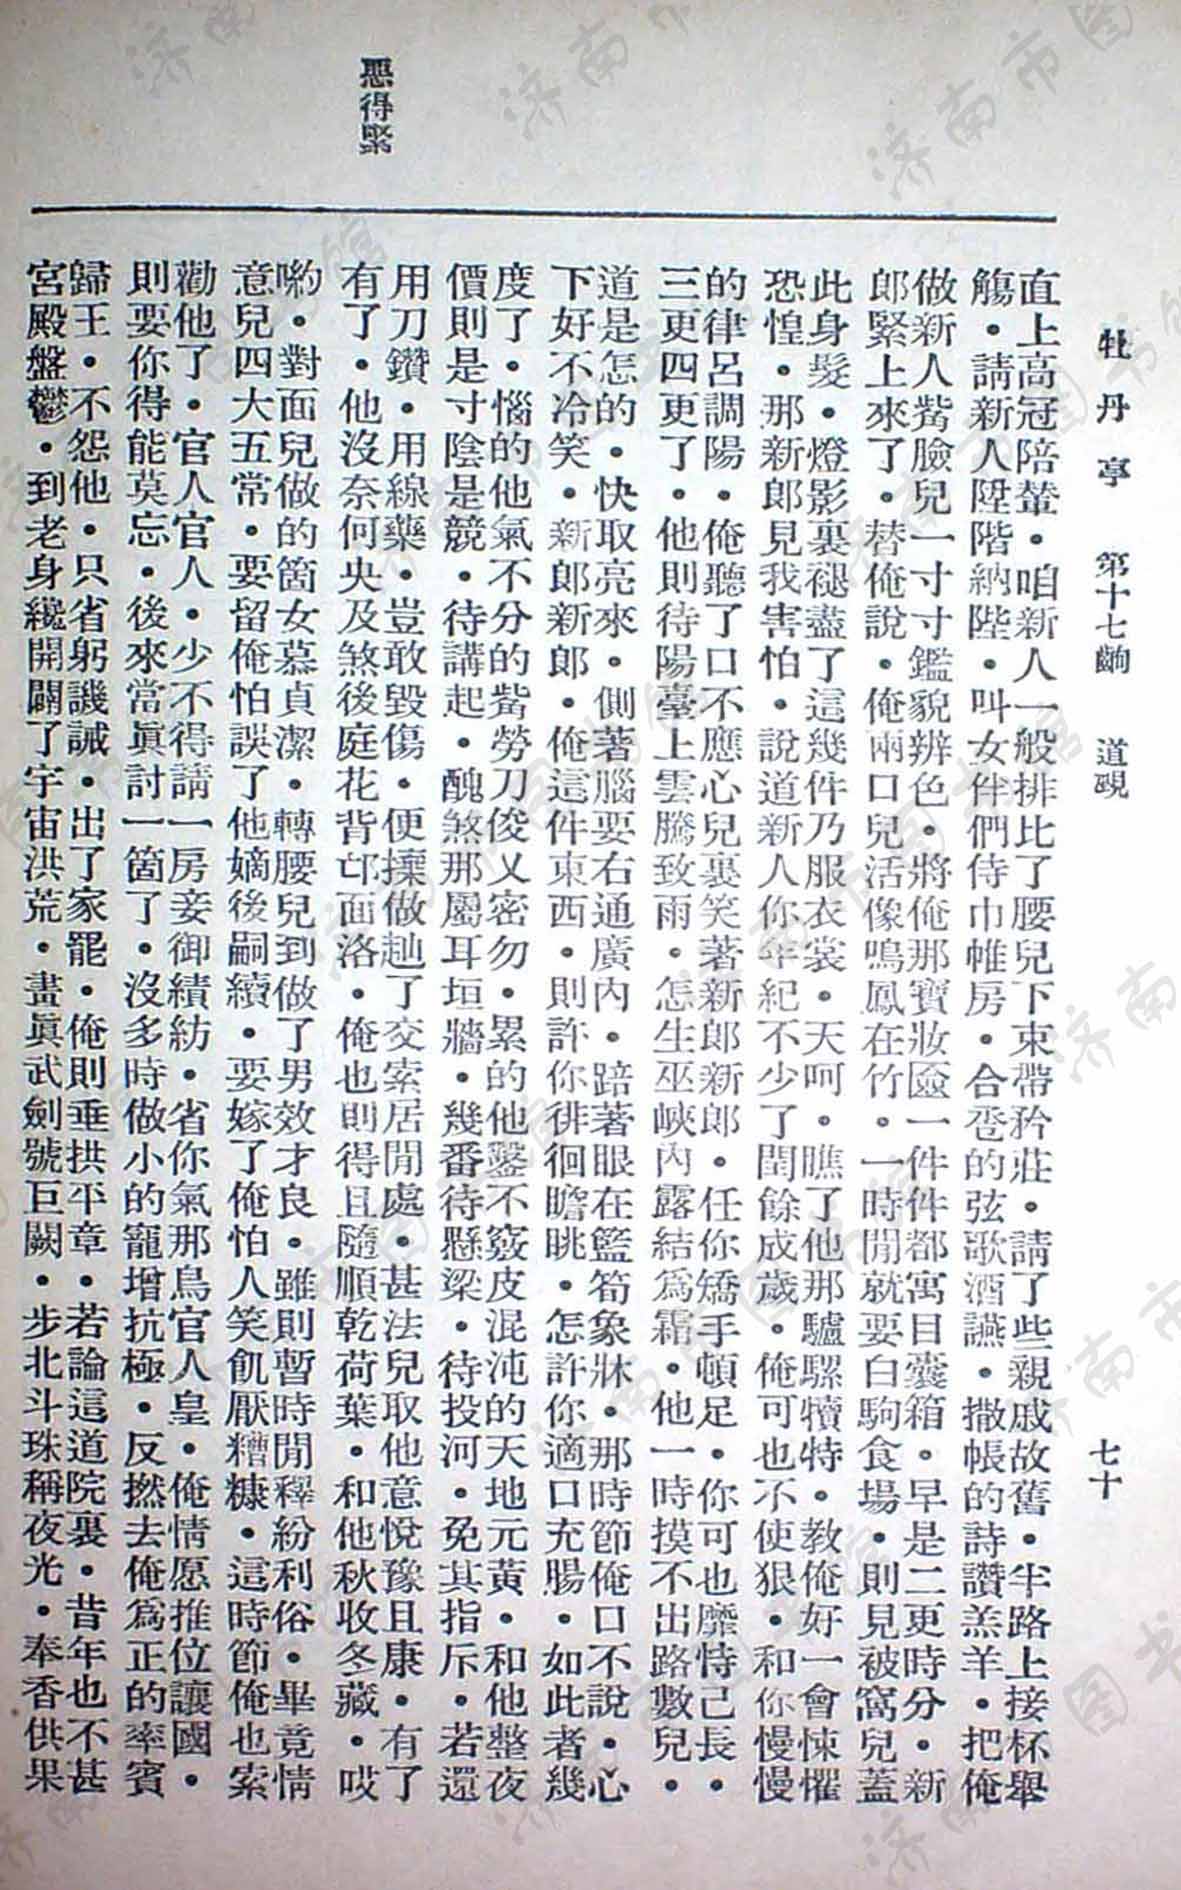 牡丹亭 第十七齣 道覡 七十
惡得緊
直上高冠陪輦・咱新人一般排比了腰兒下束帶矜莊・請了些親戚故舊・半路上接杯舉
觴・請新人陞階納陛・叫女伴們侍巾帷房・合卺的弦歌酒讌・撒帳的詩讚羔羊・把俺
做新人觜臉兒一寸寸鑑貌辨色・將俺那寶妝匳一件件都寓目囊箱・早是二更時分・新
郎緊上來了・替俺說・俺兩口兒活像鳴鳳在竹・一時閒就要白駒食場・則見被窩兒蓋
此身髮・燈影裏褪盡了這幾件乃服衣裳・天呵・瞧了他那驢騾犢特・教俺好一會悚懼
恐惶・那新郎見我害怕・說道新人你年紀不少了閏餘成歲・俺可也不使狠・和你慢慢
的律呂調陽・俺聽了口不應心兒裏笑著新郎新郎・任你矯手頓足・你可也靡恃己長・
三更四更了・他則待陽臺上雲騰致雨・怎生巫峽內露結爲霜・他一時摸不出路數兒・
道是怎的・快取亮來・側著腦要右通廣內・踣著眼在籃筍象牀・那時節俺口不說・心
下好不冷笑・新郎新郎・俺這件東西・則許你徘徊瞻眺・怎許你適口充腸・如此者幾
度了・惱的他氣不分的觜勞刀俊乂密勿・累的他鑿不竅皮混沌的天地元黃・和他整夜
價則是寸陰是競・待講起・醜煞那屬耳垣牆・幾番待懸梁・待投河・免其指斥・若還
用刀鑽・用線藥・豈敢毀傷・便攘做赸了交索居閒處・甚法兒取他意悅豫且康・有了
有了・他沒奈何央及煞後庭花背邙面洛・俺也則得且隨順乾荷葉・和他秋收冬藏・哎
喲・對面兒做的箇女慕貞潔・轉腰兒到做了男效才良・雖則暫時閒釋紛利俗・畢竟情
意兒四大五常・要留俺怕誤了他嫡後嗣續・要嫁了俺怕人笑飢厭糟糠・這時節俺也索
勸他了・官人官人・少不得請一房妾御績紡・省你氣那鳥官人皇・俺情愿推位讓國・
則要你得能莫忘・後來當眞討一箇了・沒多時做小的寵增抗極・反撚去俺爲正的率賓
歸王・不怨他・只省躬譏誡・出了家罷・俺則垂拱平章・若論這道院裏・昔年也不甚
宮殿盤鬱・到老身纔開闢了宇宙洪荒・畫眞武劍號巨闕・步北斗珠稱夜光・奉香供果